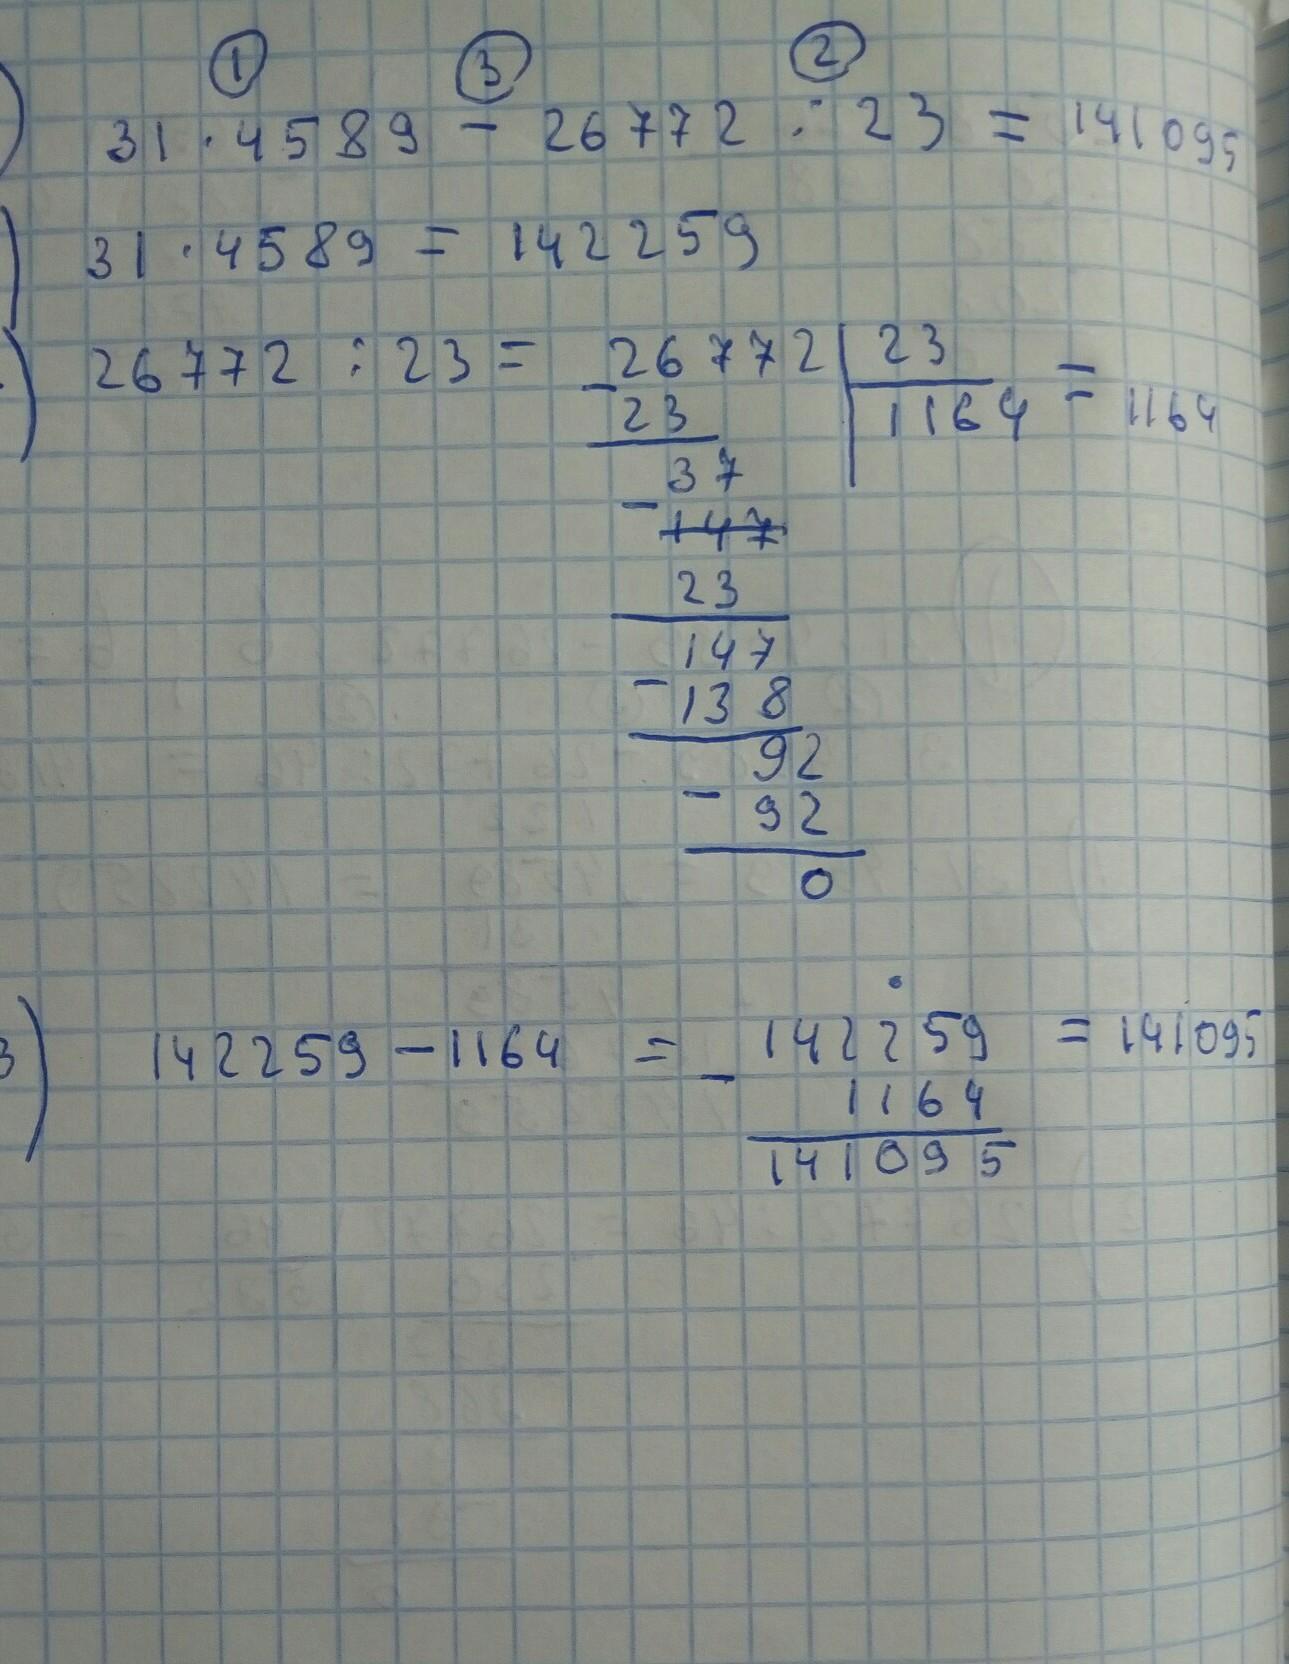 1 3 2
31 · 4589 - 26772 : 23 = 141095
31 · 4589 = 142259
26772 : 23 = 26772 | 23
- 23 1164 = 1164
37
- 147
23
147
- 138
92
- 92
0
3) 142259 - 1164 = 142259 = 141095
- 1164
141095